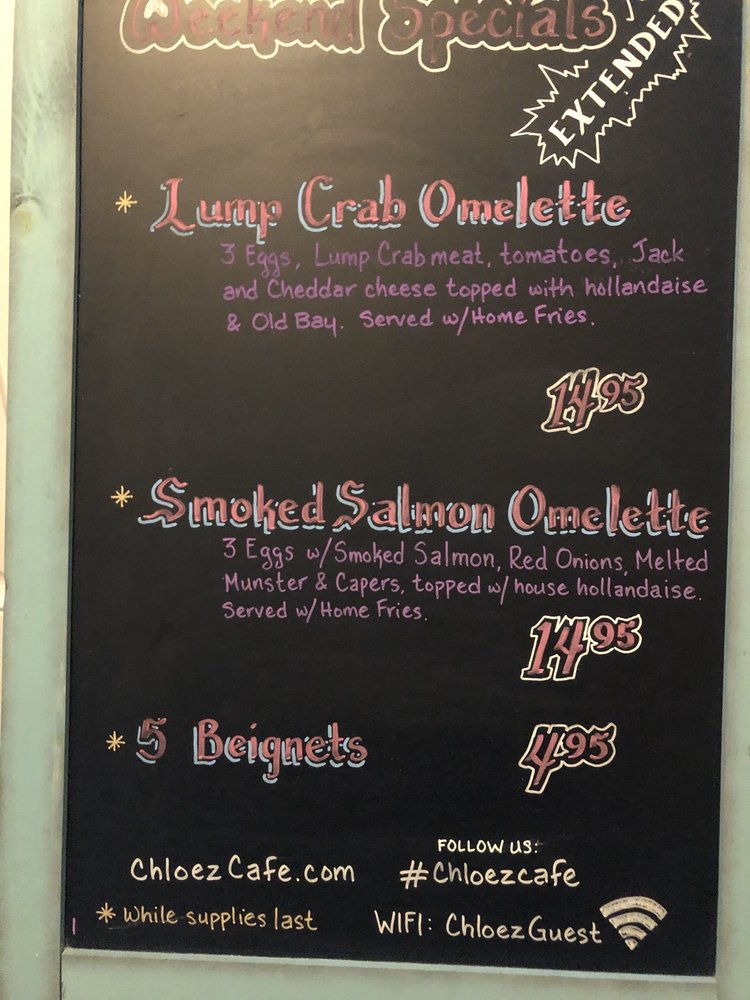 Weekend Specials
EXTENDED
* Lump Crab Omelette
3 Eggs, Lump Crab meat, tomatoes, Jack
and Cheddar cheese topped with hollandaise
& Old Bay. Served w/Home Fries.
14.95
* Smoked Salmon Omelette
3 Eggs w/Smoked Salmon, Red Onions, Melted
Munster & Capers, topped w/house hollandaise.
Served w/Home Fries.
14.95
* 5 Beignets 4.95
FOLLOW US:
ChloezCafe.com #Chloezcafe
* While supplies last WIFI: ChloezGuest